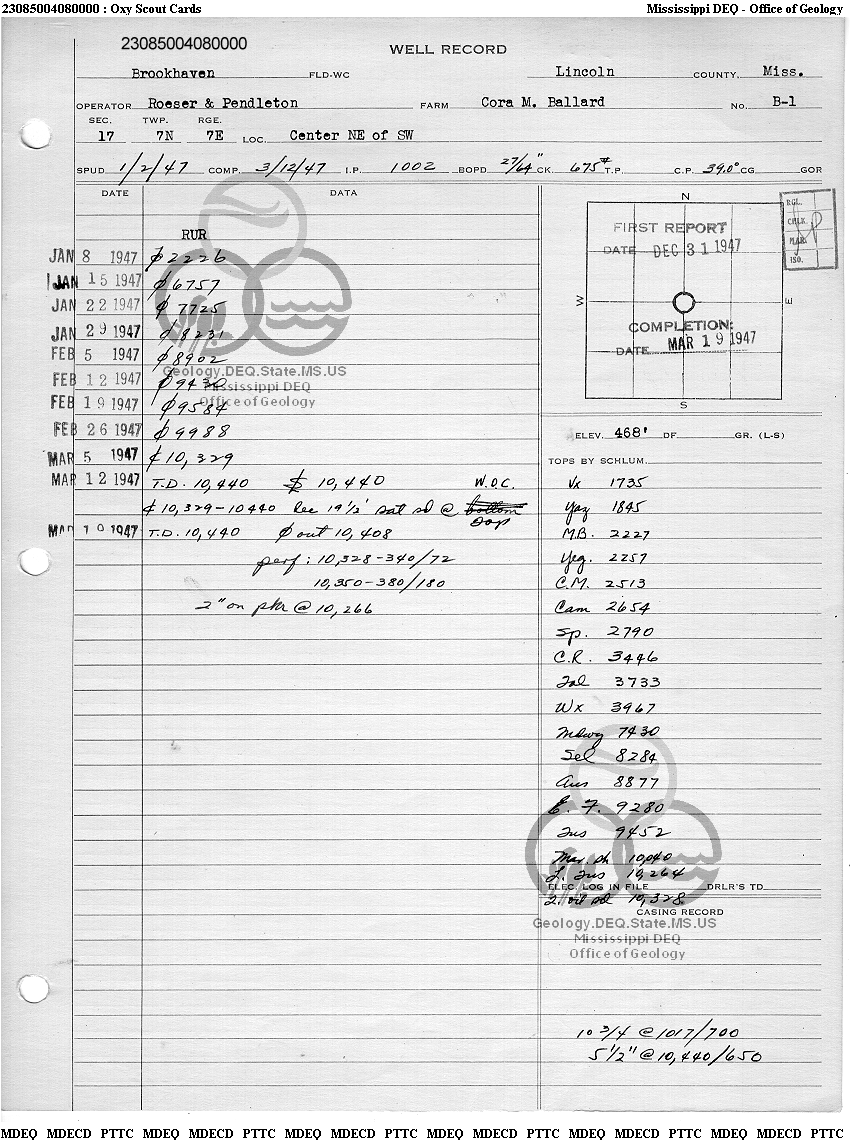 23085004080000 : Oxy Scout Cards Mississippi DEQ - Office of Geology
23085004080000
WELL RECORD
Brookhaven FLD-WC Lincoln COUNTY, Miss.
OPERATOR Roeser & Pendleton FARM Cora M. Ballard No. B-1
SEC. TWP. RGE.
17 7N 7E LOC. Center NE of SW
SPUD 1/2/47 COMP. 3/12/47 I.P. 1002 BOPD 27/64" CK. 675# T.P. C.P. 39.0° CG GOR
DATE DATA
RUR
JAN 8 1947 ϕ2226
JAN 15 1947 ϕ6757
JAN 22 1947 ϕ7725
JAN 29 1947 ϕ8231
FEB 5 1947 ϕ8902
FEB 12 1947 ϕ9430
FEB 19 1947 ϕ9584
FEB 26 1947 ϕ9988
MAR 5 1947 ¢10,329
MAR 12 1947 T.D. 10,440 $ 10,440 W.O.C.
¢ 10,329-10440 Rec 19½' sat sd @ bottom
top
MAR 19 1947 T.D. 10,440 ϕ out 10,408
perf: 10,328-340/72
10,350-380/180
2" on pkr @ 10,266
Geology.DEQ.State.MS.US
Mississippi DEQ
Office of Geology
N
W
E
S
FIRST REPORT
DATE DEC 31 1947
COMPLETION:
DATE MAR 19 1947
RGL.
CHLK.
ISO.
ELEV. 468' DF. GR. (L-S)
TOPS BY SCHLUM.
Vx 1735
Yaz 1845
M.B. 2227
Yeg. 2257
C.M. 2513
Cam 2654
Sp. 2790
C.R. 3446
Tal 3733
Wx 3967
Mdwy 7430
Sel 8284
Aus 8877
E. F. 9280
Tus 9452
Mar. sh 10,040
L. Tus 10,264
ELEC. LOG IN FILE DRLR'S TD
oil sd 10,328
CASING RECORD
Geology.DEQ.State.MS.US
Mississippi DEQ
Office of Geology
10 3/4 @ 1017/700
5 1/2" @ 10,440/650
MDEQ MDECD PTTC MDEQ MDECD PTTC MDEQ MDECD PTTC MDEQ MDECD PTTC MDEQ MDECD PTTC MDEQ MDECD PTTC